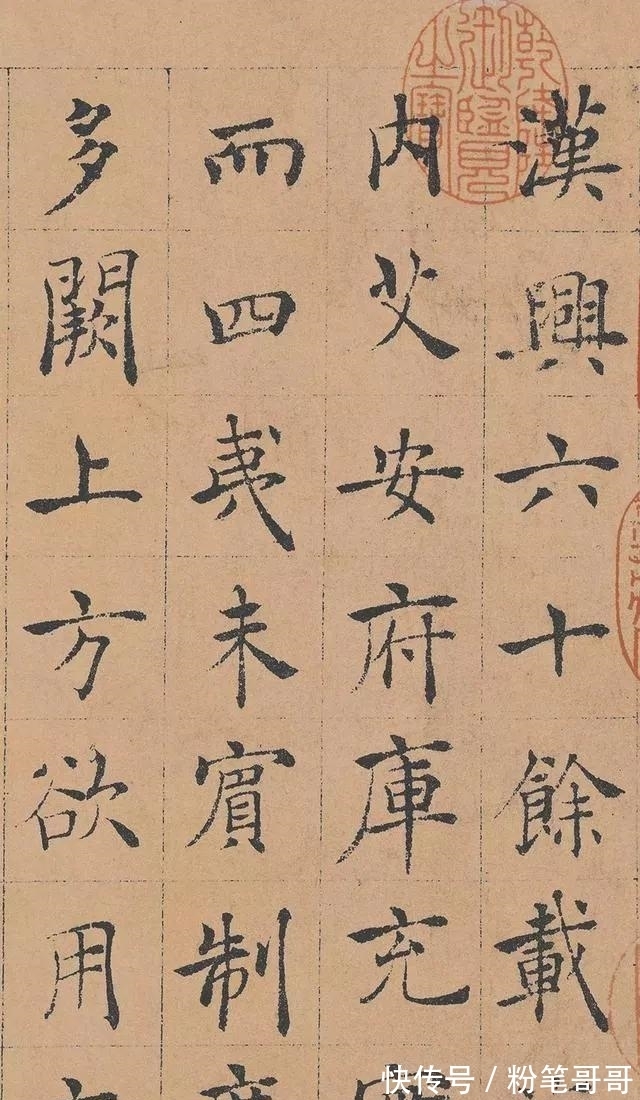 漢興六十餘載
内艾安府庫充
而四夷未賓制
多闕上方欲用
乾隆御覽之寶
快传号 / 粉笔哥哥